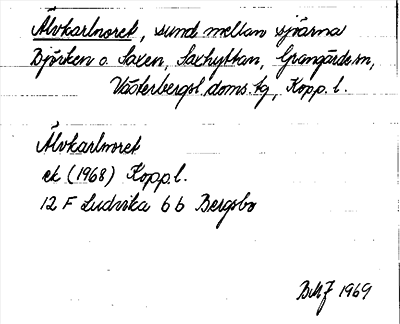 Älvkarlnoret, sund mellan sjöarna
Björken o. Saxen, Saxhyttan, Grangärde sn,
Västerbergsl. doms. tg, Kopp. l.
Älvkarlnoret
ek (1968) Kopp. l.
12 F Ludvika 6 b Bergsbo
1969